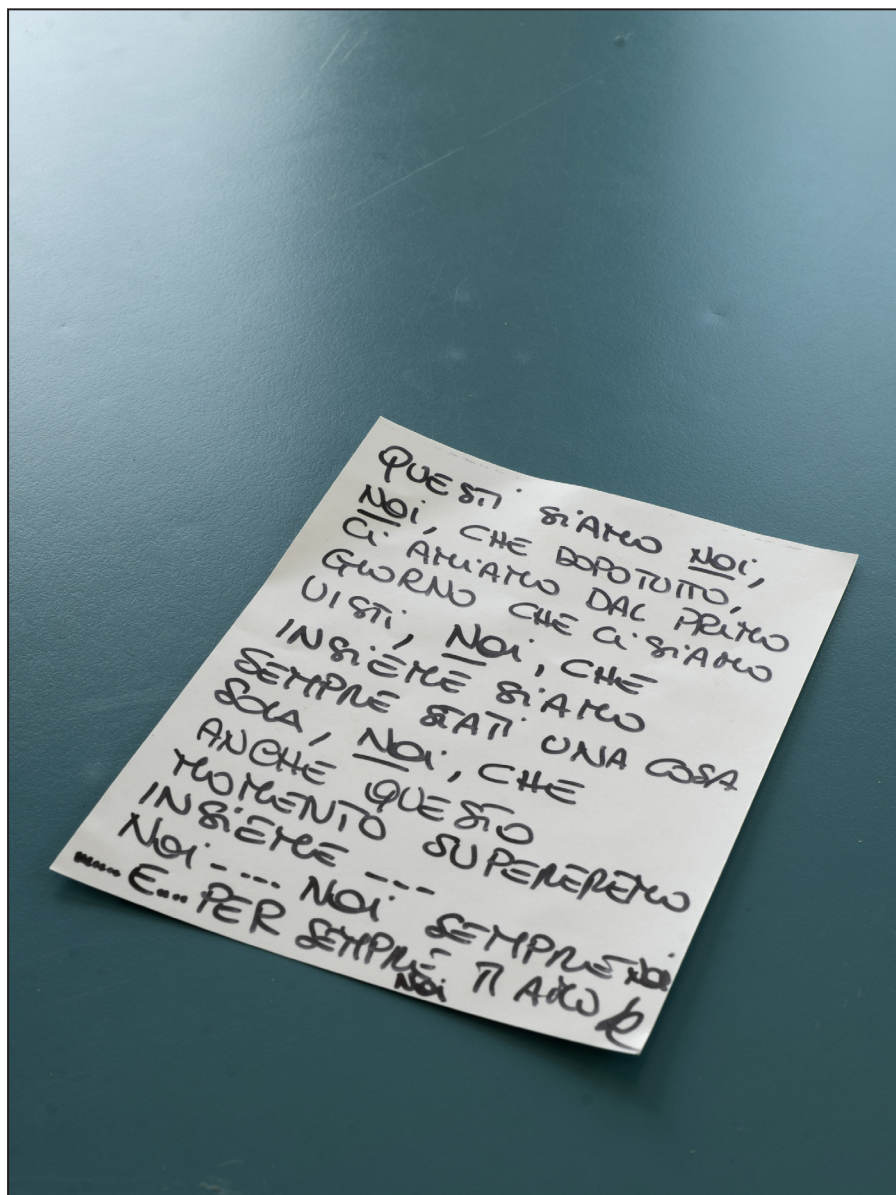 QUESTI SIAMO NOI,
NOI, CHE DOPOTUTTO,
CI AMIAMO DAL PRIMO
GIORNO CHE CI SIAMO
VISTI, NOI, CHE
INSIEME SIAMO
SEMPRE STATI UNA COSA
SOLA, NOI, CHE
ANCHE QUESTO
MOMENTO SUPEREREMO
INSIEME ---
NOI-... NOI SEMPRE NOI
...... E... PER SEMPRE TI AMO
NOI